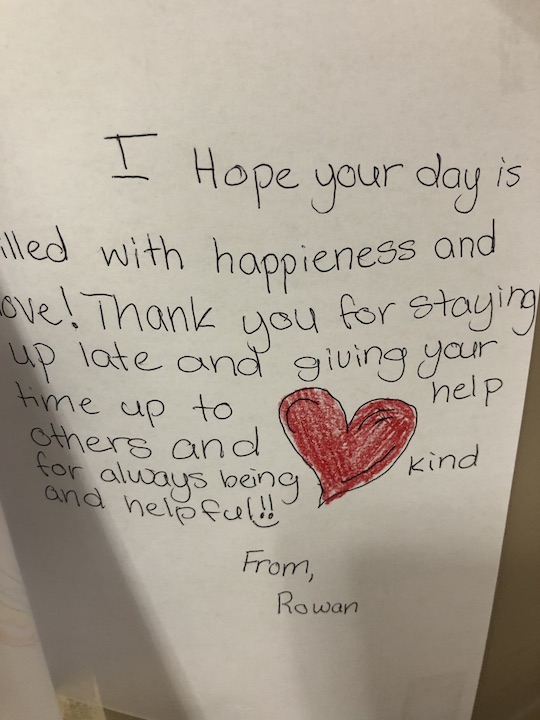 I Hope your day is
illed with happieness and
ove! Thank you for staying
up late and giving your
time up to help
others and
for always being kind
and helpful!!
From,
Rowan